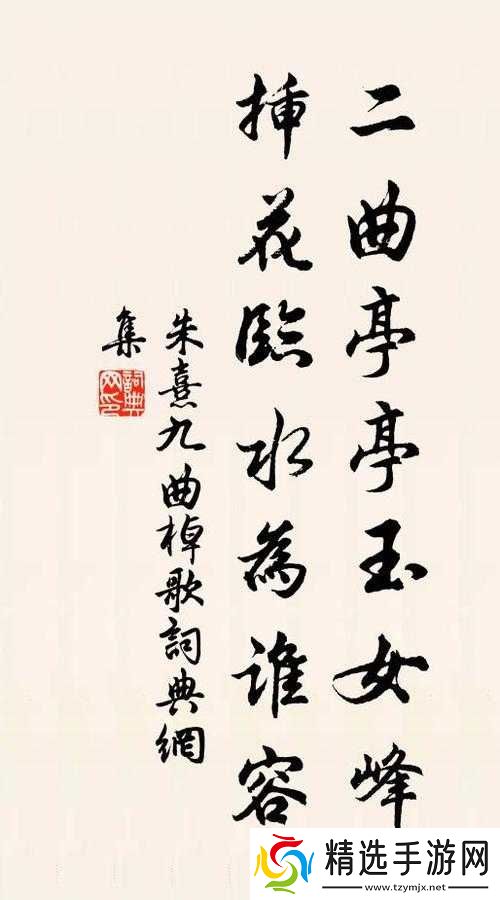 二曲亭亭玉女峰
插花臨水為誰容
朱熹九曲棹歌詞典網
集
詞典网印
精选手游网
www.tzymjx.net